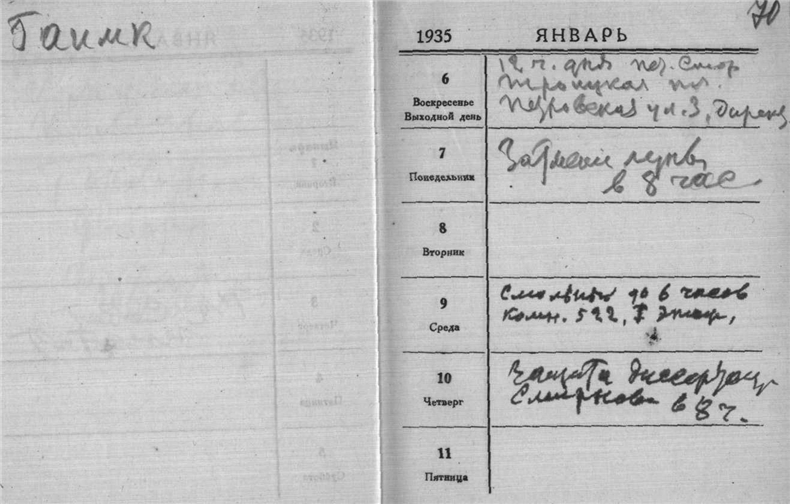 Гаимк
70
1935 ЯНВАРЬ
6
Воскресенье
Выходной день
12 ч. дня
Троицкая пл.
Петровская ул. 3, Дирекц
7
Понедельник
Затмен луны
в 8 час
8
Вторник
9
Среда
Смольный до 6 часов
комн. 522, этаж,
10
Четверг
Защита диссертац
Смирнова в 8 ч.
11
Пятница